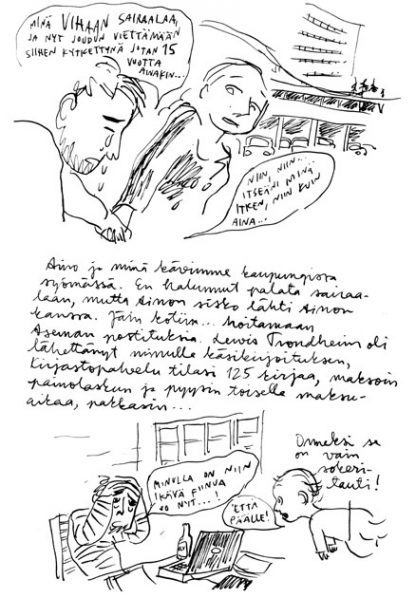 MINÄ VIHAAN SAIRAALAA,
JA NYT JOUDUN VIETTÄMÄÄN
SIIHEN KYTKETTYNÄ JOTAN 15
VUOTTA
AINAKIN...
NIIN, NIIN...
ITSEÄNI MINÄ
ITKEN, NIIN KUIN
AINA...
Aino ja minä kävimme kaupungissa
syömässä. En halunnut palata sairaa-
laan, mutta Ainon sisko lähti Ainon
kanssa. Jäin kotiin... hoitamaan
Aseman postituksia. Lewis Trondheim oli
lähettänyt minulle käsikirjoituksen,
kirjastopalvelu tilasi 125 kirjaa, maksoin
painolaskun ja pyysin toiselle maksu-
aikaa, pakkasin...
MINULLA ON NIIN
IKÄVÄ PIINVA
JO NYT...!
ETTÄ
PÄÄLLE!
Onneksi se
on vain
sokeri-
tauti!